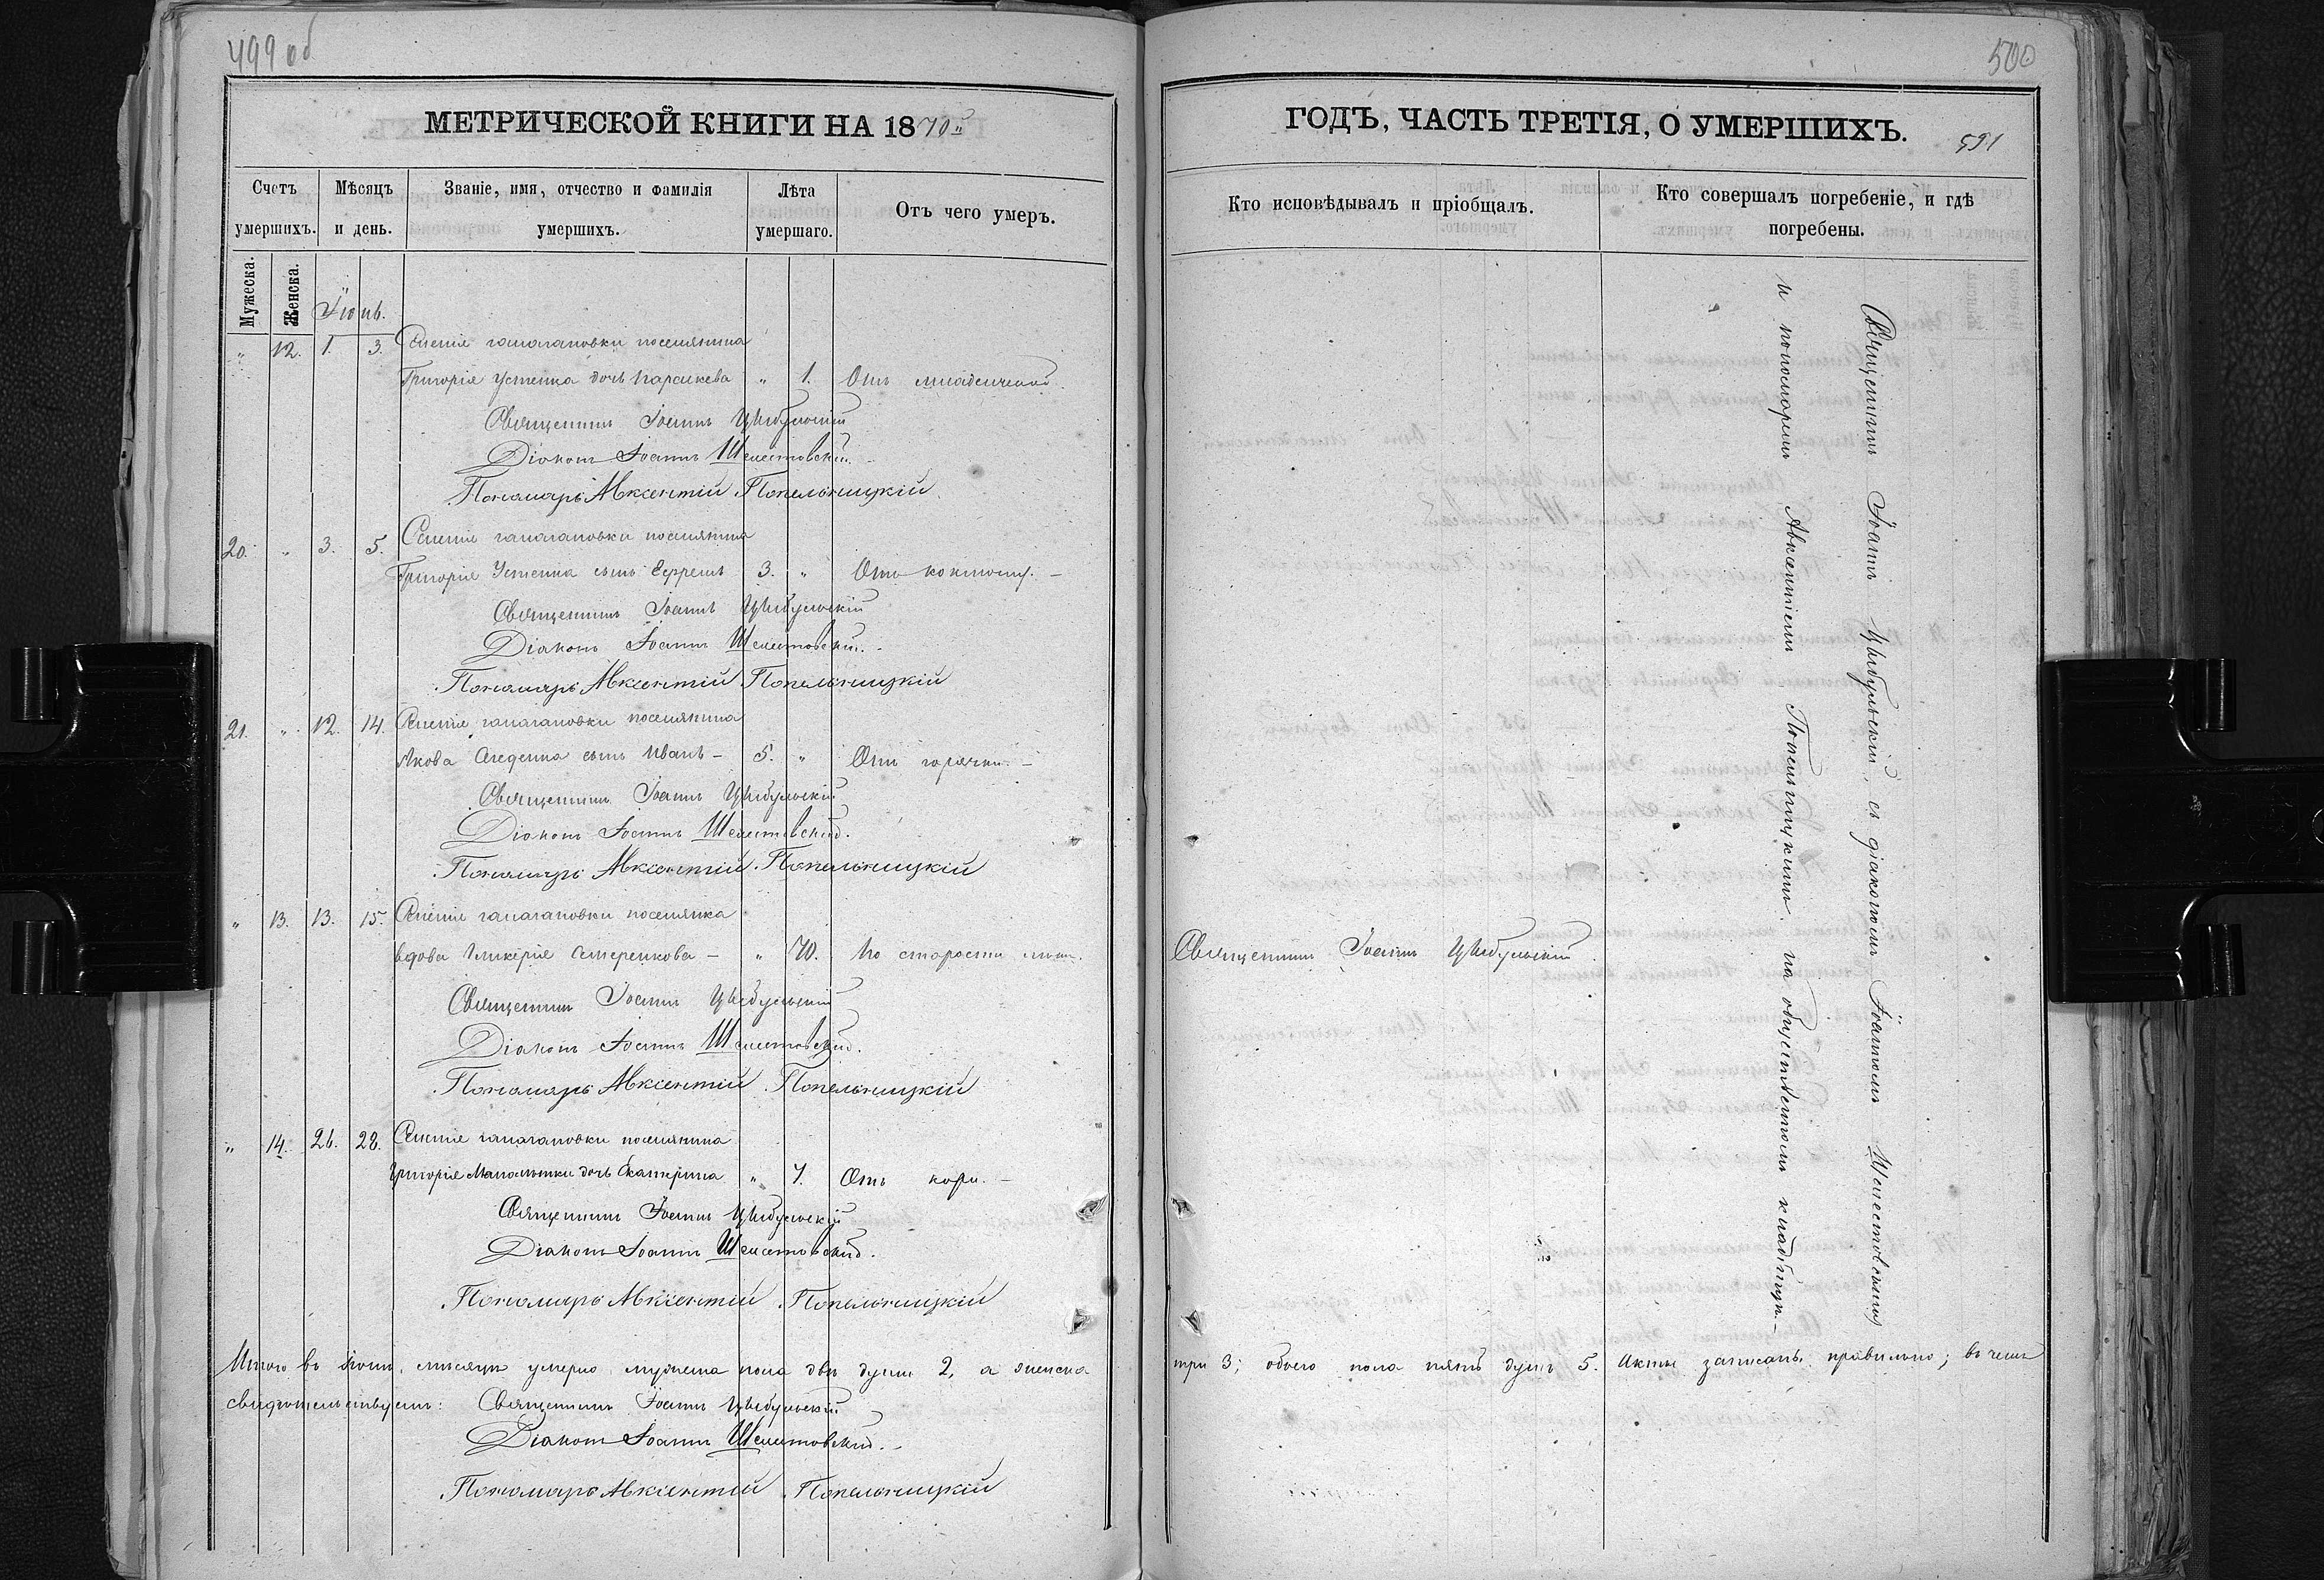 499 об
МЕТРИЧЕСКОЙ КНИГИ НА 1870й
Счетъ умершихъ.
Мѣсяцъ и день.
Званіе, имя, отчество и фамилія умершихъ.
Лѣта умершаго.
Отъ чего умеръ.
Мужеска.
Женска.
Іюнь.
" 12. 1. 3. Селенія галагановки поселянина
Григорія Устенка дочь Параскева " 1. Отъ младенческой.
Священникъ Іоаннъ Цыбульскій
Діаконъ Іоаннъ Шелестовскій.
Пономарь Авксентій Попельницкій
20. " 3. 5. Селенія галагановки поселянина
Григорія Устенка сынъ Ефремъ 3. " Отъ коклюшу. –
Священникъ Іоаннъ Цыбульскій
Діаконъ Іоаннъ Шелестовскій. –
Пономарь Авксентій Попельницкій
21. " 12. 14. Селенія галагановки поселянина
Якова сынъ Иванъ – 5. " Отъ горячки. –
Священникъ Іоаннъ Цыбульскій
Діаконъ Іоаннъ Шелестовскій.
Пономарь Авксентій Попельницкій
" 13. 13. 15. Селенія галагановки поселянка
вдова Гликерія – " 70. По старости лѣтъ.
Священникъ Іоаннъ Цыбульскій
Діаконъ Іоаннъ Шелестовскій.
Пономарь Авксентій Попельницкій
" 14. 26. 28. Селенія галагановки поселянина
Григорія дочь Екатерина " 7. Отъ кори. –
Священникъ Іоаннъ Цыбульскій
Діаконъ Іоаннъ Шелестовскій.
Пономарь Авксентій Попельницкій
Итого въ Іюнѣ мѣсяцѣ умерло мужеска пола двѣ души 2, а женска
свидѣтельствуемъ: Священникъ Іоаннъ Цыбульскій
Діаконъ Іоаннъ Шелестовскій. –
Пономарь Авксентій Попельницкій
500
ГОДЪ, ЧАСТЬ ТРЕТІЯ, О УМЕРШИХЪ.
591
Кто исповѣдывалъ и пріобщалъ.
Кто совершалъ погребеніе, и гдѣ погребены.
Священникъ Іоаннъ Цыбульскій, съ діакономъ Іоанномъ Шелестовскимъ
и пономаремъ Авксентіемъ Попельницкимъ на общественномъ кладбищѣ. –
Священникъ Іоаннъ Цыбульскій.
три 3; обоего пола пять душъ 5. Акты записаны правильно; въ чемъ